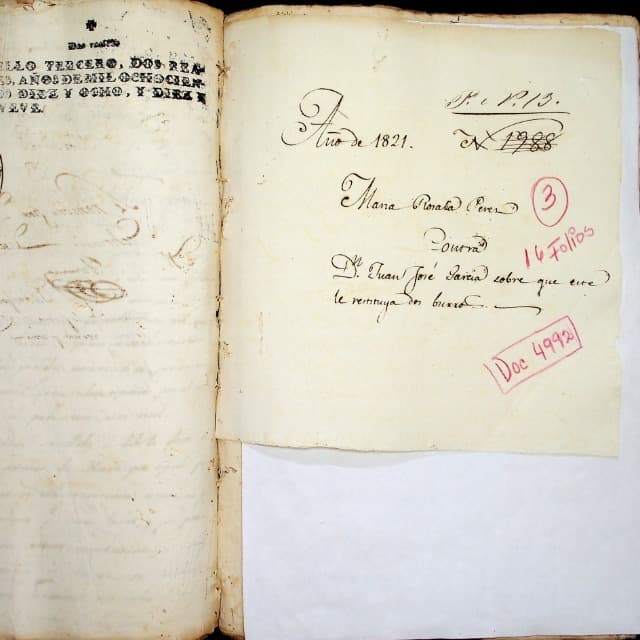 Dos reales
ELLO TERCERO, DOS REA-
ES, AÑOS DE MIL OCHOCIEN-
OS DIEZ Y OCHO, Y DIEZ Y
NUEVE.
P. 13.
Año de 1821.
Nº 1988
3
Maria Rosalia Perez
Contra
16 Folios
Dn. Juan José Garcia sobre que este
le restituya dos burros.
Doc 4992